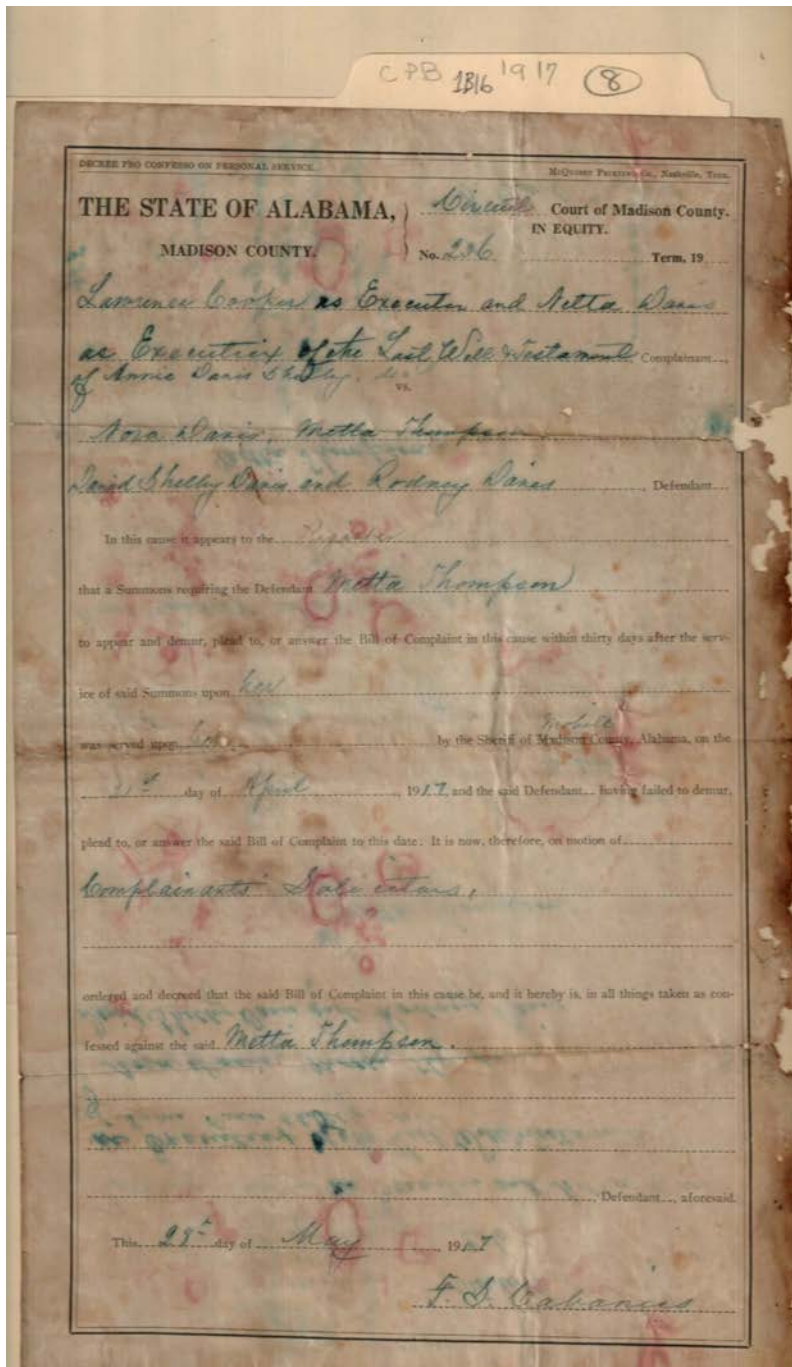 CPB 1B16 1917 8
DECREE PRO CONFESSO ON PERSONAL SERVICE.
McQuiddy Printing Co., Nashville, Tenn.
THE STATE OF ALABAMA, Circuit Court of Madison County.
IN EQUITY.
MADISON COUNTY. No. 236 Term, 19
Lawrence Cooper as Executor and Netta Davis
as Executrix of the Last Will & Testament Complainant
of Annie Davis Shelby,
vs.
Nora Davis, Metta Thompson
David Shelby Davis and Rodney Davis, Defendant
In this cause it appears to the Register
that a Summons requiring the Defendant Metta Thompson
to appear and demur, plead to, or answer the Bill of Complaint in this cause within thirty days after the serv-
ice of said Summons upon her
was served upon by the Sheriff of Madison County, Alabama, on the
Mobile
day of April, 1917 and the said Defendant having failed to demur,
plead to, or answer the said Bill of Complaint to this date: It is now, therefore, on motion of
Complainants' Solicitors,
ordered and decreed that the said Bill of Complaint in this cause be, and it hereby is, in all things taken as con-
fessed against the said Metta Thompson.
, Defendant, aforesaid.
This day of May, 1917
F. D. Cabaniss